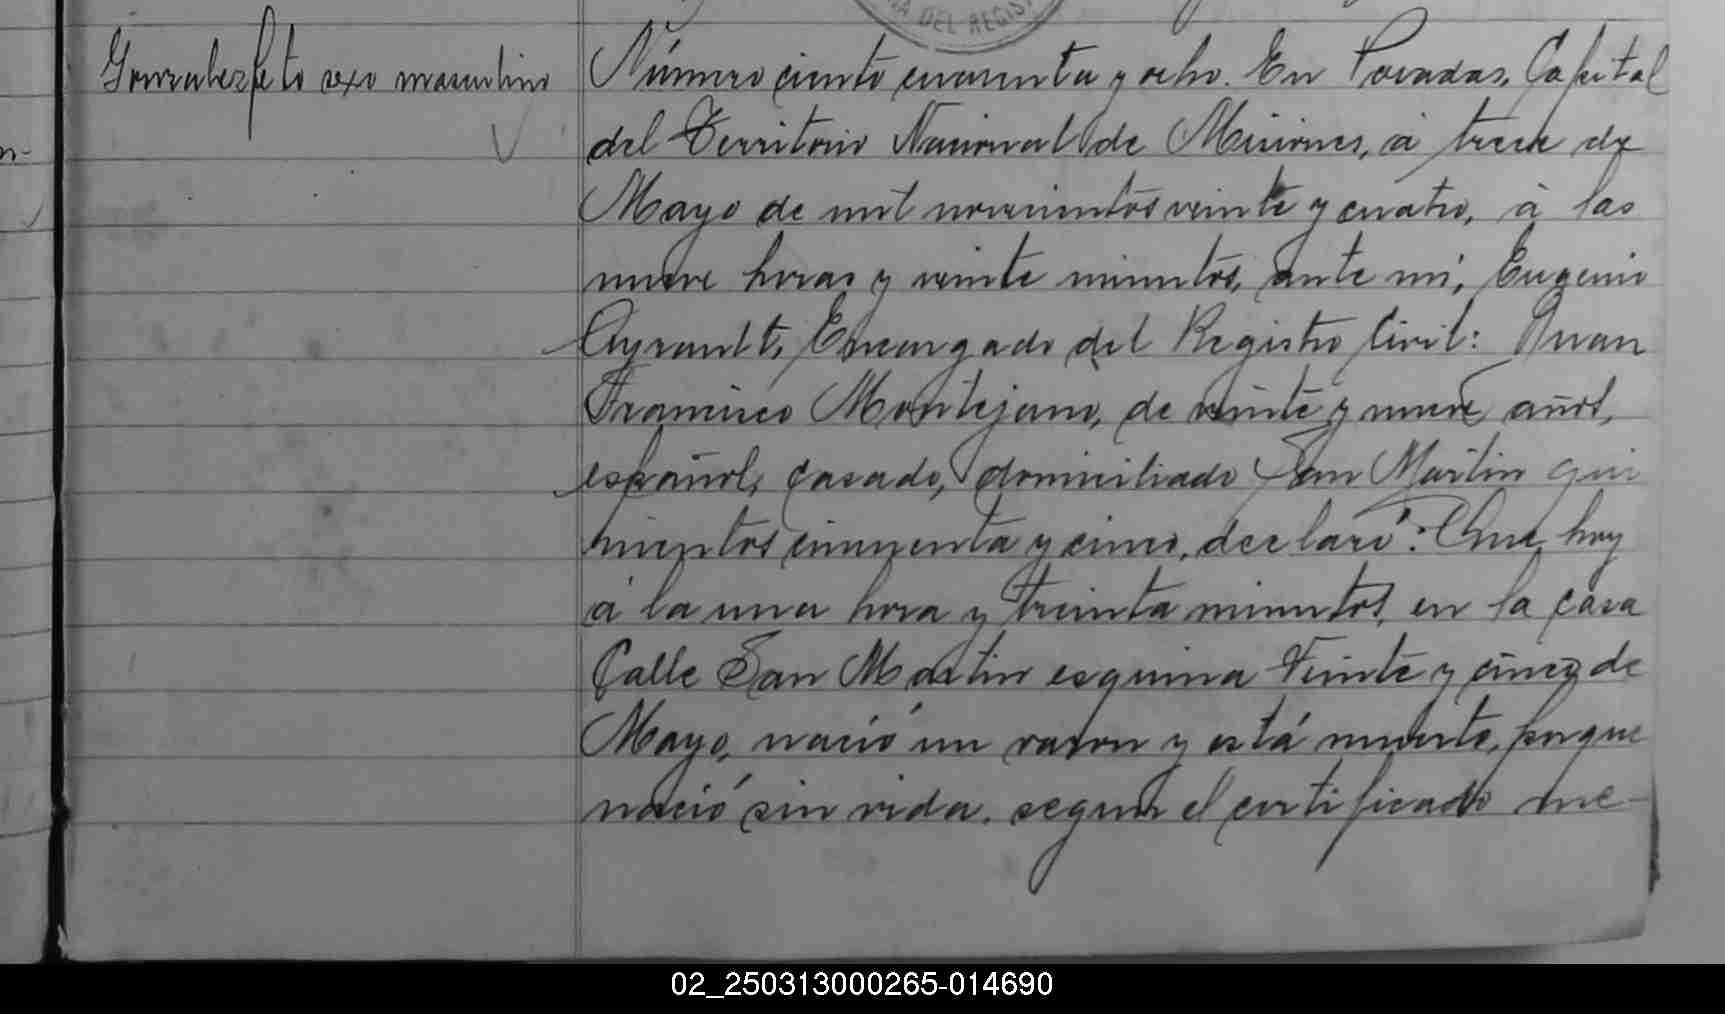 NA DEL REGIS
Gonzalez feto sexo masculino
Número ciento cuarenta y ocho. En Posadas, Capital
del Territorio Nacional de Misiones, á trece de
Mayo de mil novecientos veinte y cuatro, á las
nueve horas y veinte minutos, ante mí, Eugenio
Ayrault, Encargado del Registro Civil: Juan
Francisco Montejano, de veinte y nueve años,
español, casado, domiciliado San Martin qui
nientos cincuenta y cinco, declaró: Que hoy
á la una hora y treinta minutos, en la casa
Calle San Martin esquina Veinte y cinco de
Mayo, nació un varon y está muerto, porque
nació sin vida, segun el certificado me-
02_250313000265-014690